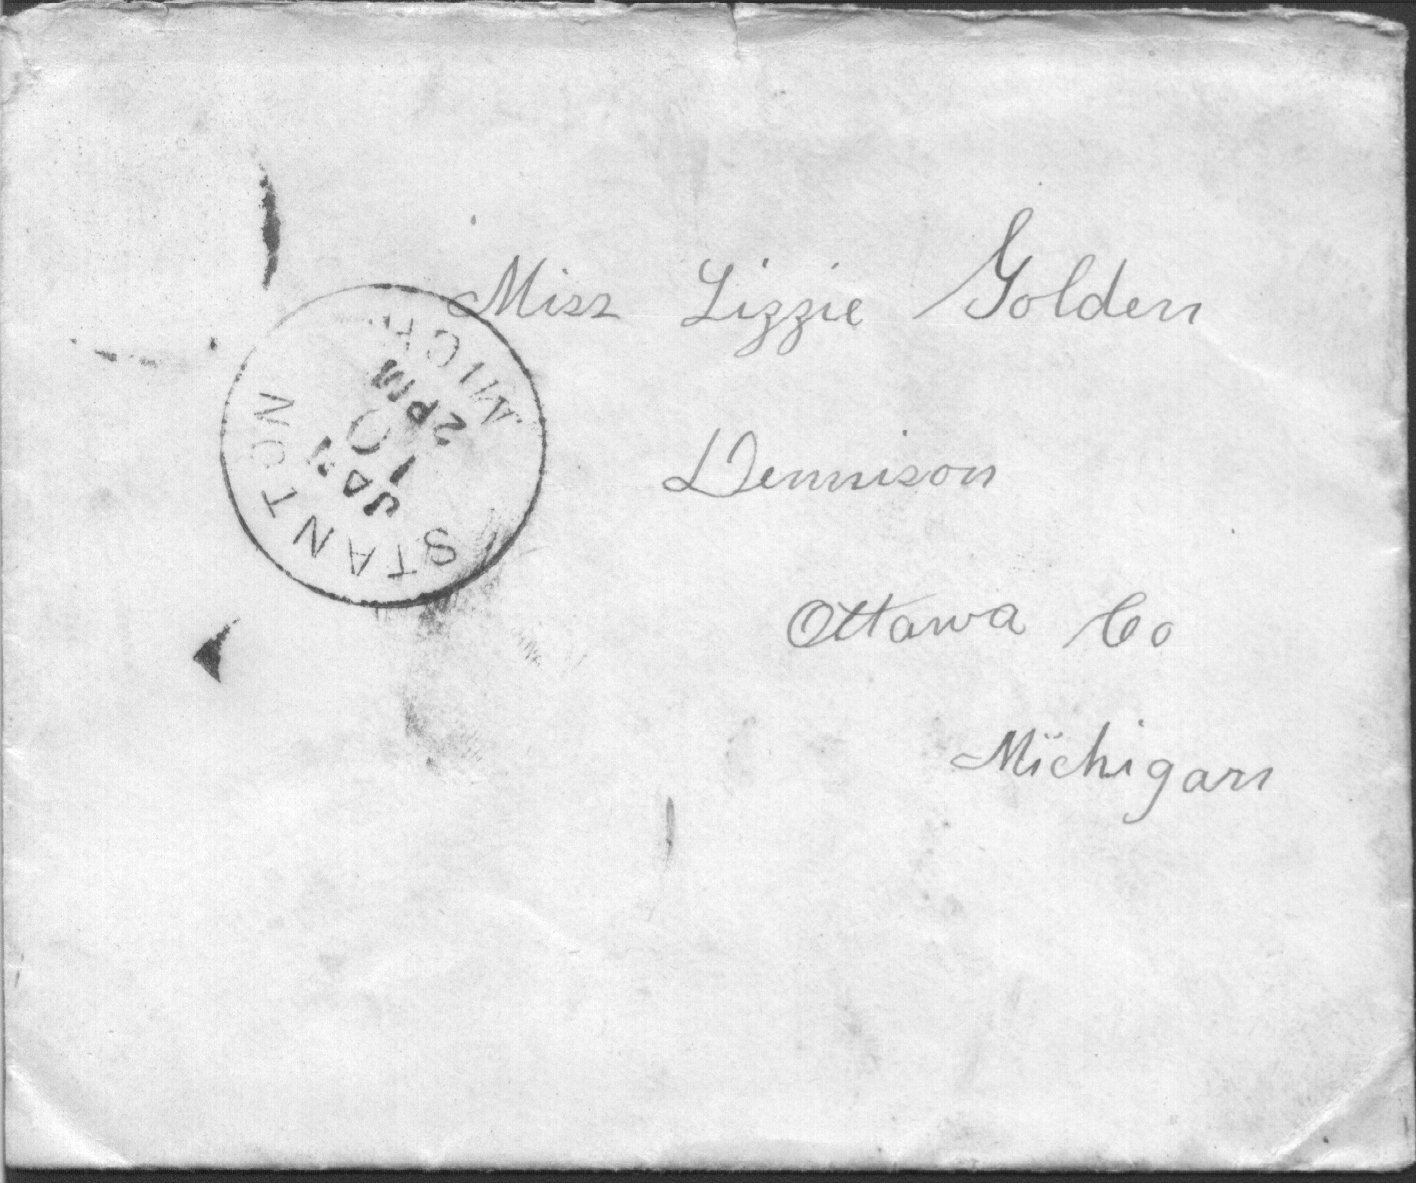 Miss Lizzie Golden
Dennison
Ottawa Co
Michigan
STANTON
JAN
10
2PM
MICH.